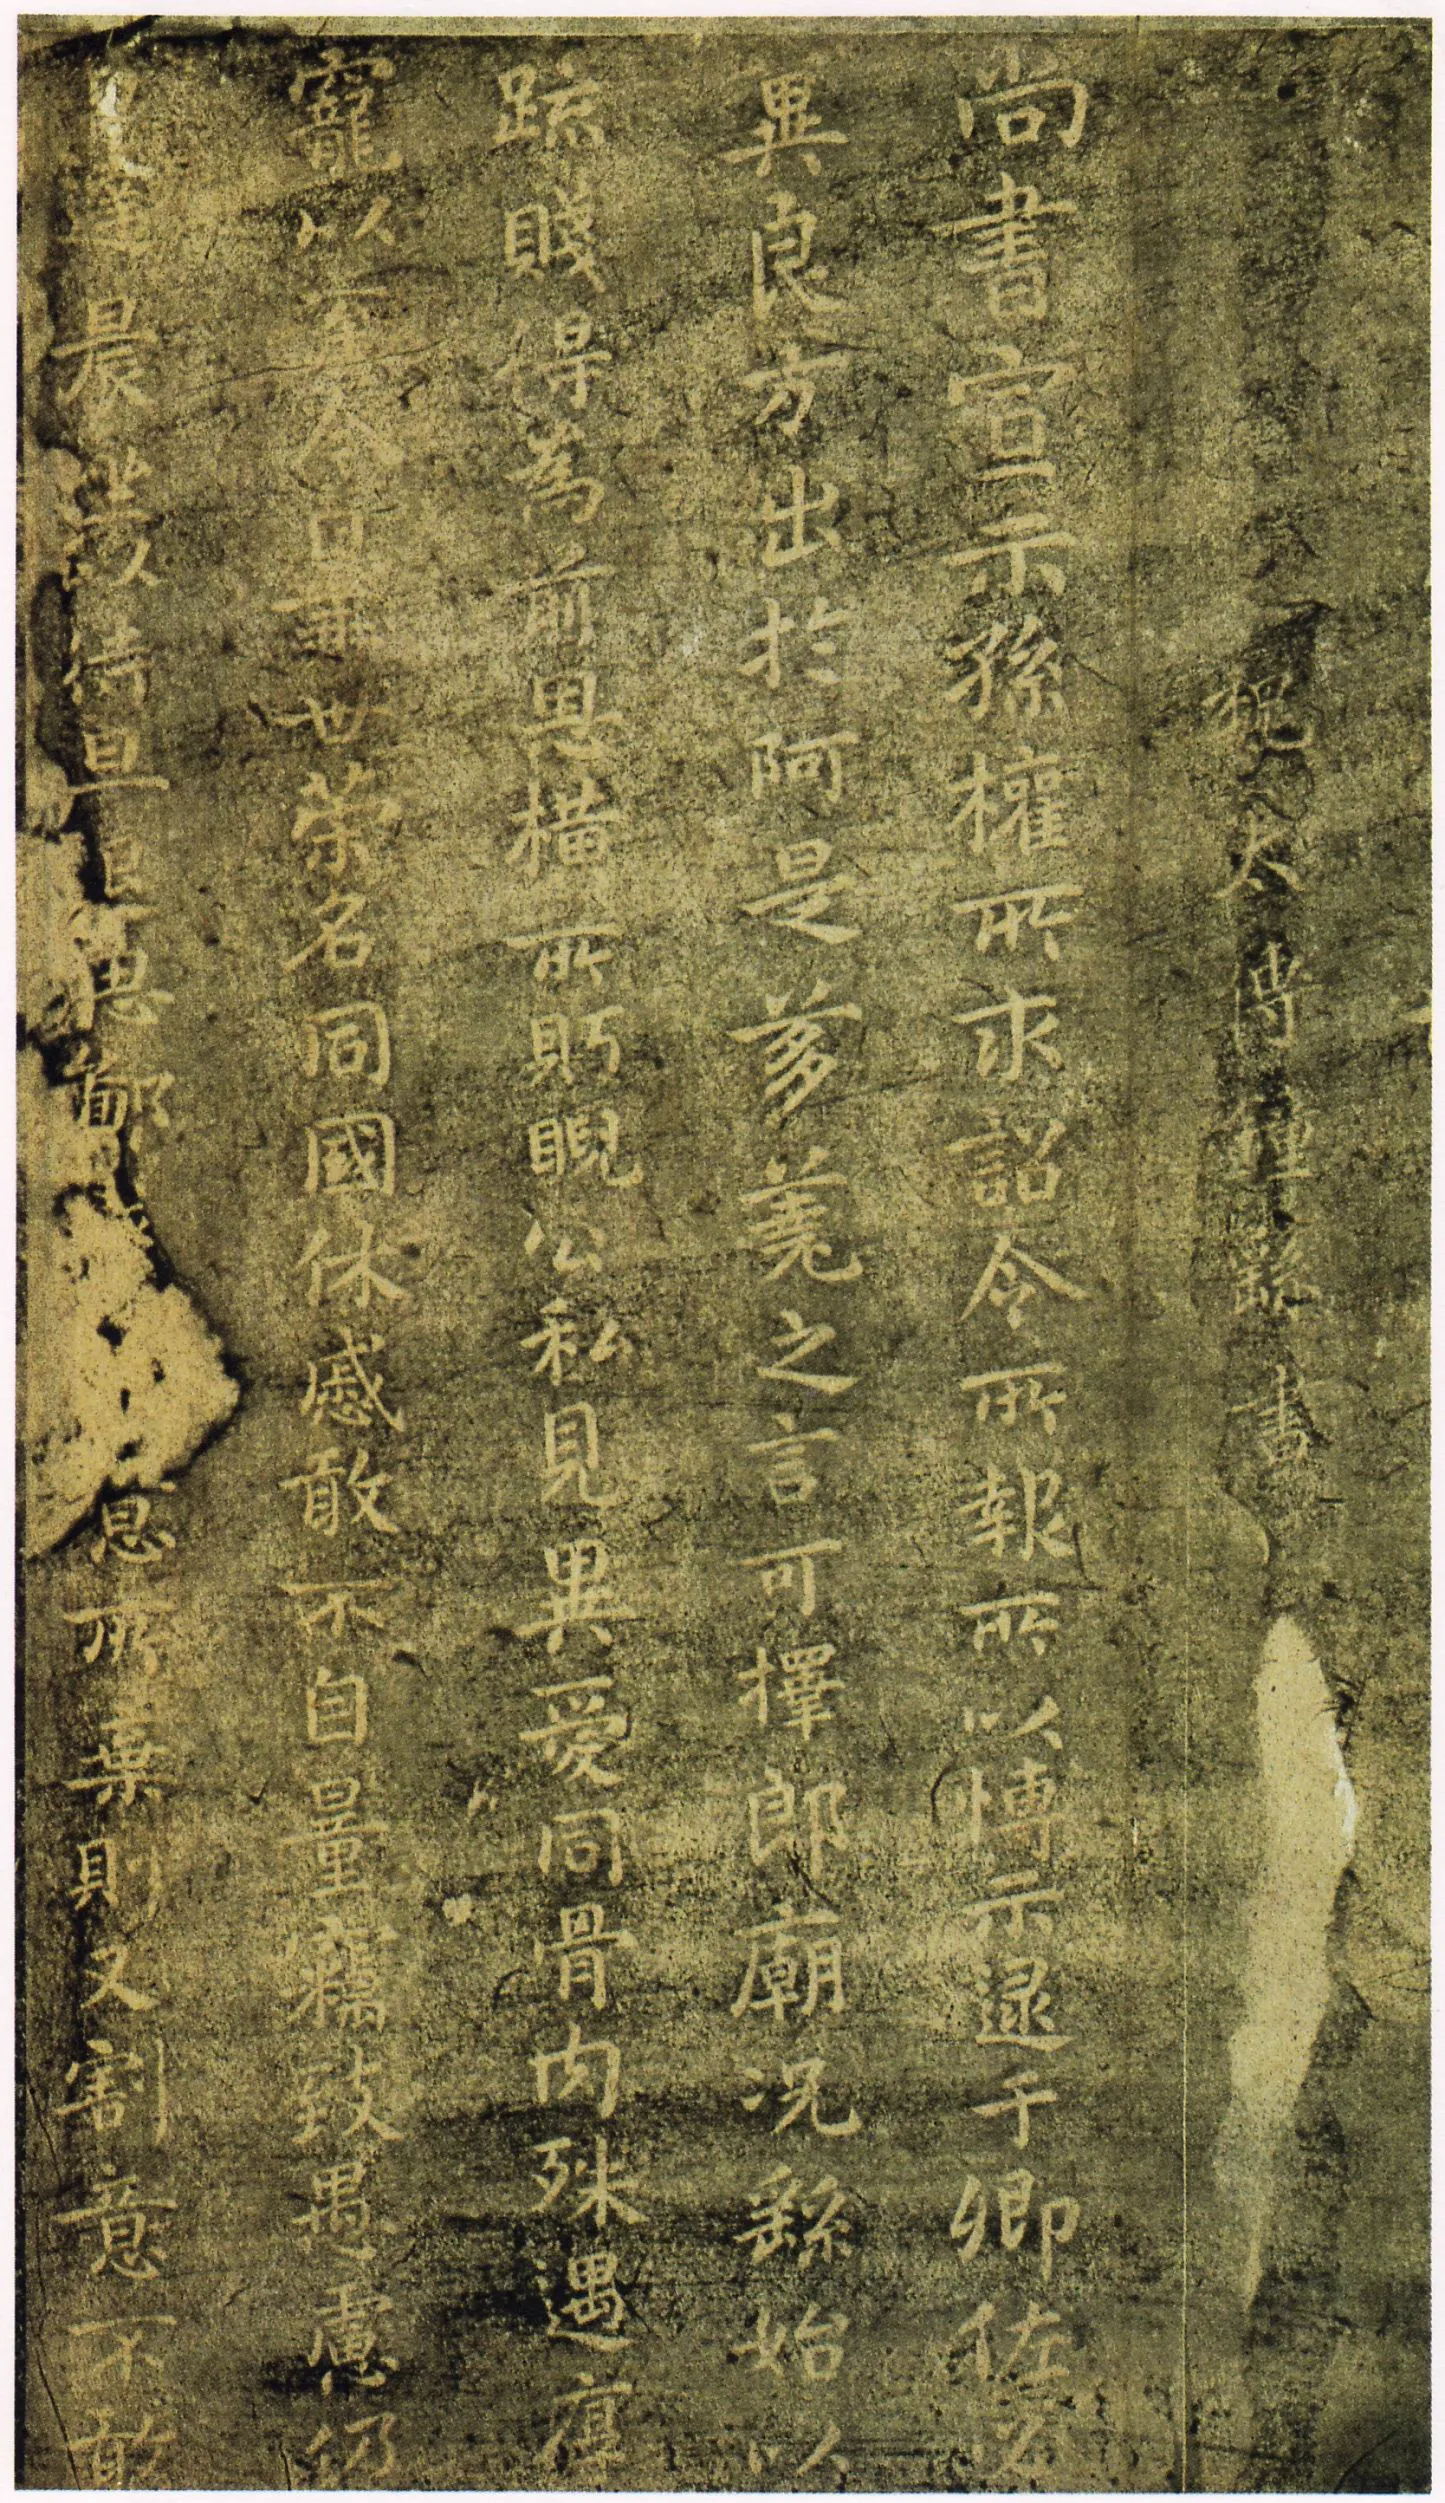 魏太傅鍾繇書
尚書宣示孫權所求詔令所報所以博示逮于卿佐必
異良方出於阿是芻蕘之言可擇郎廟況繇始以
疏賤得為前恩橫所眄睨公私見異愛同骨肉殊遇厚
寵以至今日再世榮名同國休慼敢不自量竊致愚慮仍
日達晨坐以待旦退思鄙淺 意所棄則又割意不敢